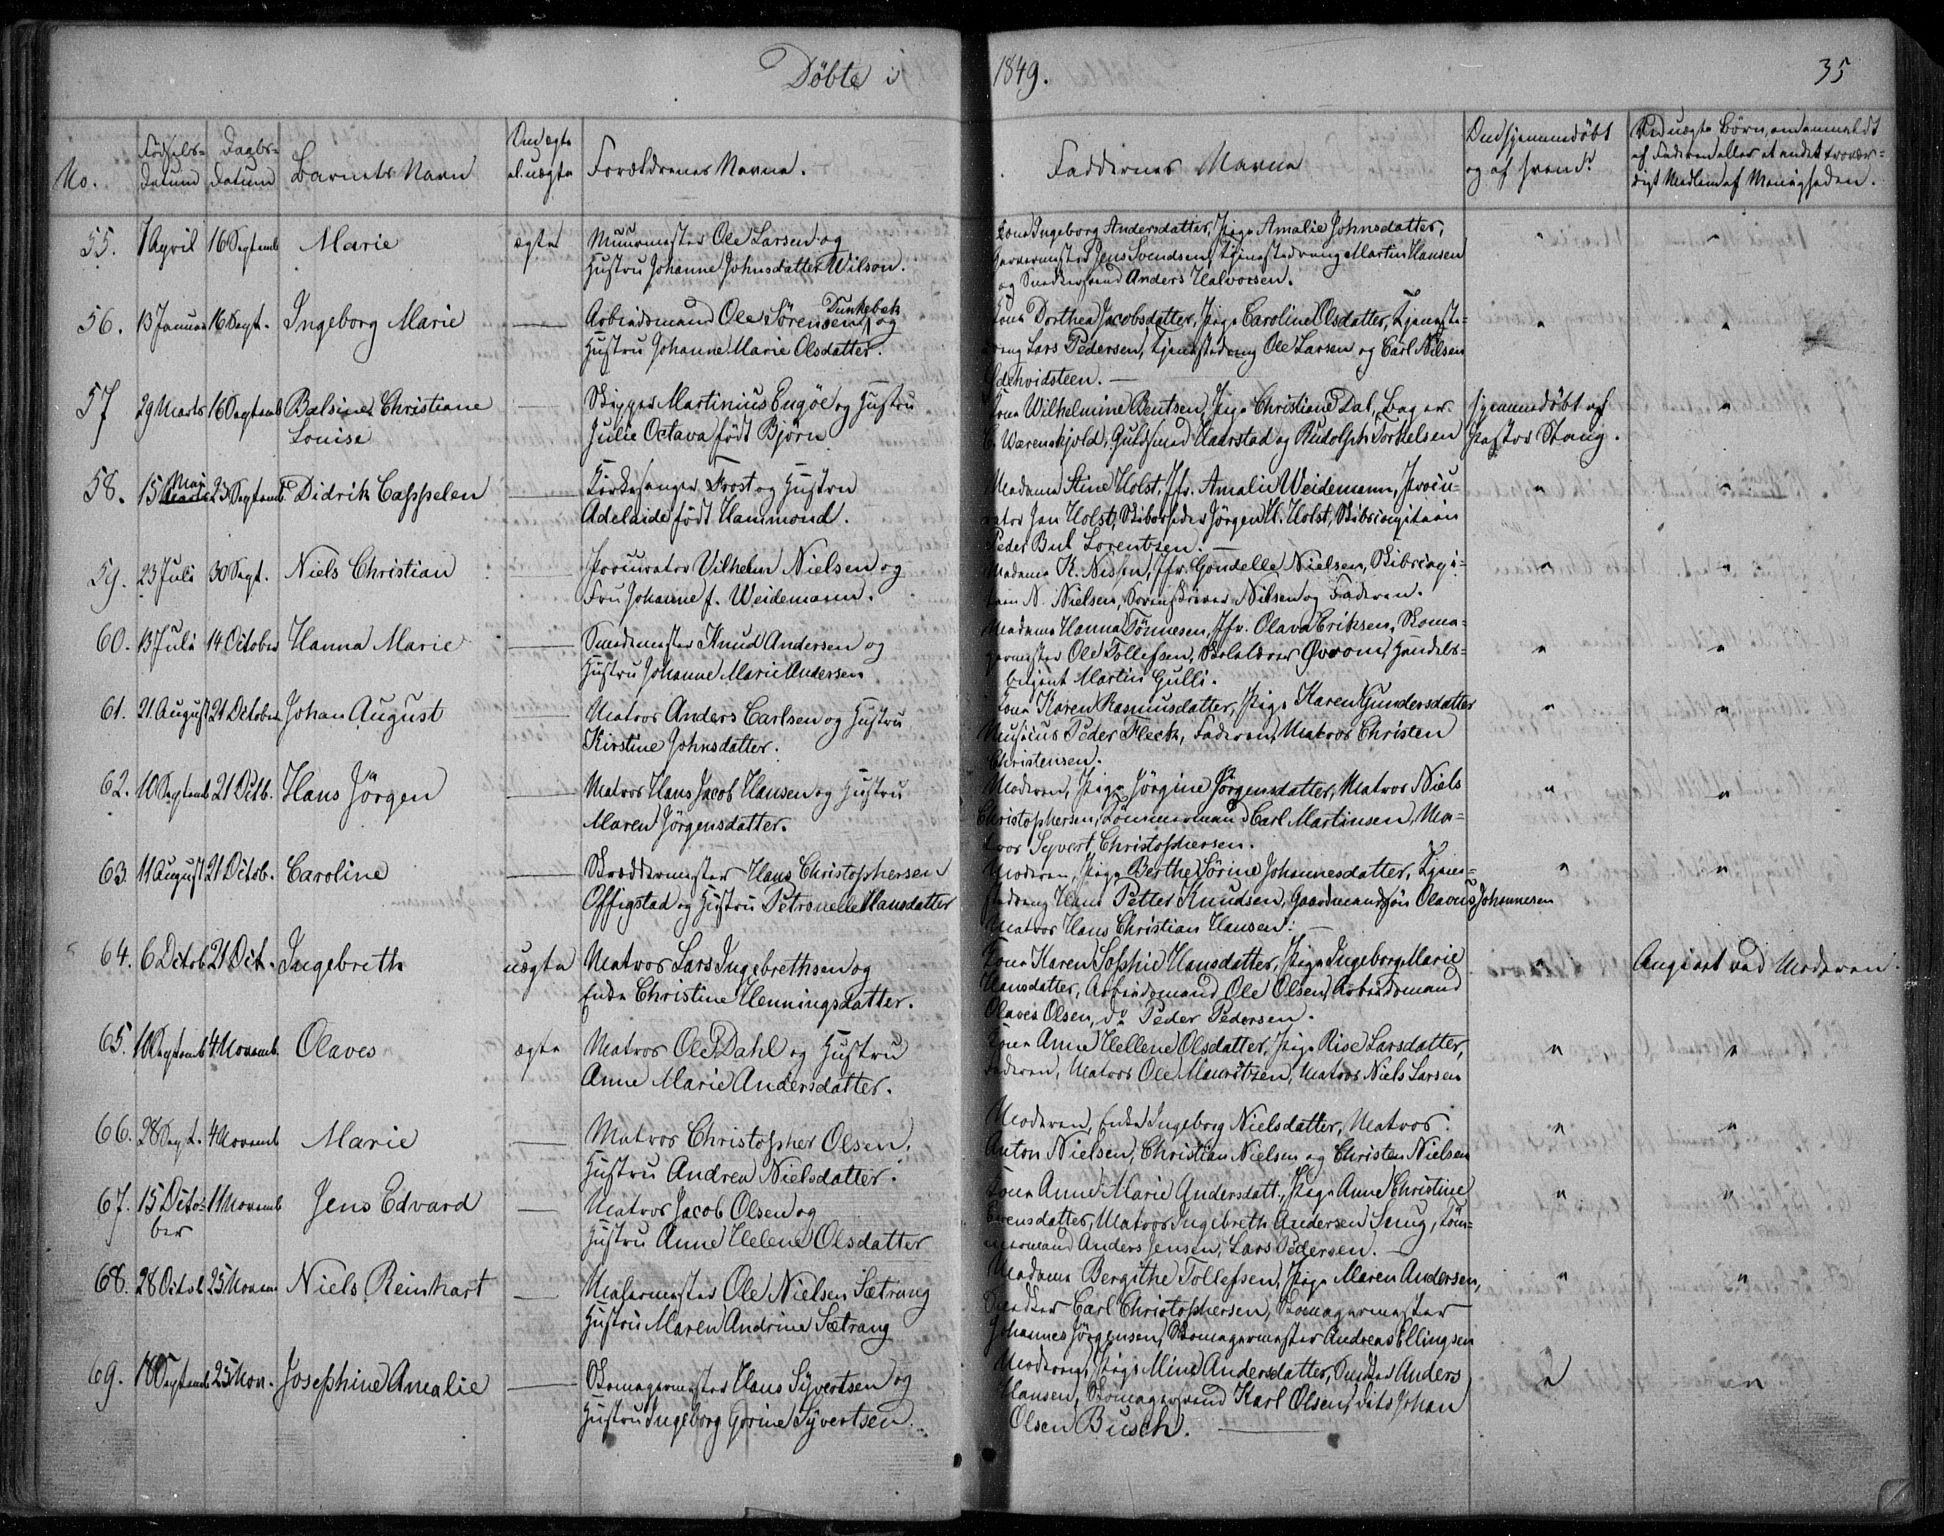 Döbte i 1849. 35
No. Fødsels-datum Daabs-datum Barnets Navn Om ægte el. uægte Forældrenes Navne. Faddernes Navne Om hjemmedøbt og af hvem? Ved uægte Børn, om anmeldt af Faderen eller et andet troværdigt Medlem af Menigheden.
55. 7 April 16 Septemb Marie ægte Muurmester Ole Larsen og
Hustru Johanne Johnsdatter Wilson.
Kone Ingeborg Andersdatter, Pige Amalie Johnsdatter,
Garvermester Jens Svendsen, Tjenestedreng Martin Hansen
og Snedkersvend Anders Halvorsen.
56. 13 Januar 16 Sept. Ingeborg Marie Arbeidsmand Ole Sörensen Tunkebek og
Hustru Johanne Marie Olsdatter.
Kone Dorthea Jacobsdatter, Pige Caroline Olsdatter, Tjeneste-
dreng Lars Pedersen, Tjenestedreng Ole Larsen og Carl Nilsen
Odehvidsteen.
57 29 Marts 16 Septemb Balsine Christiane
Louise
Skipper Martinius Engöe og Hustru
Julie Octava født Bjørn
Kone Wilhelmine Bentsen, Pige Christiane Dal, Bager
C. Warenskjold, Guldsmed Haarstad og Rudolph Torkelsen
hjemmedøbt af
Pastor Stang.
58. 15 Maj 23 Septemb P Didrik Cappelen Kirkesanger Frost og Hustru
Adelaide født Hammond.
Madame Stine Holst, Jfr. Amalie Weidemann, Procu-
rator Jan Holst, Skibsrheder Jörgen H. Holst, Skibscapitain
Peder But Lorentzen.
59. 23 Juli 30 Sept. Niels Christian Procurator Vilhelm Nielsen og
Fru Johanne f. Weidemann.
Madame K. Nissen, Jfr. Gondelle Nielsen, Skibscapi-
tain N. Nielsen, Sorenskriver Nilsen og Faderen.
60. 13 Juli 14 October Hanna Marie Smedemester Knud Andersen og
Hustru Johanne Marie Andersen
Madame Hanna Tönnesen, Jfr. Olava Eriksen, Skoma-
germester Ole Tollefsen, Skolelærer Øvrom, Handels-
betjent Martin Gulli.
61. 21 August 21 October Johan August Matros Anders Carlsen og Hustru
Kirstine Johnsdatter.
Kone Karen Rasmusdatter, Pige Karen Gundersdatter
Musicus Peder Fleck, Faderen, Matros Christen
Christensen.
62. 10 Septemb 21 Octb. Hans Jörgen Matros Hans Jacob Hansen og Hustru
Maren Jörgensdatter.
Moderen, Pige Jörgine Jörgensdatter, Matros Niels
Christophersen, Tömmermand Carl Martinsen, Ma-
tros Syvert Christophersen.
63 11 August 21 Octob. Caroline Skræddermester Hans Christophersen
Offigstad og Hustru Petronelle Hansdatter
Moderen, Pige Berthe Sörine Johannesdatter, Tjene-
stedreng Hans Petter Knudsen, Gaardmandssøn Olavus Johannesen
Matros Hans Christian Hansen.
64. 6 Octob 21 Oct. Ingebreth uægte Matros Lars Ingebrethsen og
Enke Christine Henningsdatter.
Kone Karen Sophie Hansdatter, Pige Ingeborg Marie
Hansdatter, Arbeidsmand Ole Olsen, Arbeidsmand
Olaves Olsen, do Peder Pedersen.
Angivet ved Moderen.
65. 10 Septemb 4 Novemb. Olaves ægte Matros Ole P Dahl og Hustru
Anne Marie Andersdatter.
Kone Anne Hellene Olsdatter, Pige Rise Larsdatter,
Faderen, Matros Ole Mauritzen, Matros Niels Larsen
66. 28 Sept. 4 Novemb Marie Matros Christopher Olsen,
Hustru Andrea Nielsdatter.
Moderen, Enke Ingeborg Nielsdatter, Matros
Anton Nielsen, Christian Nielsen og Christen Nielsen
67. 15 Octo-
ber 11 Novemb Jens Edvard Matros Jacob Olsen og
Hustru Anne Helene Olsdatter
Kone Anne Marie Andersdatt., Pige Anne Christine
Evensdatter, Matros Ingebreth Andersen Snug, Töm-
mermand Anders Jensen, Lars Pedersen.
68. 28 Octob 25 Novem Niels Reinhart Malermester Ole Nielsen Sætrang
Hustru Maren Andrine Sætrang
Madame Bergithe Tollefsen, Pige Maren Andersen,
Snedker Carl Christophersen, Skomagermester
Johannes Jörgensen, Skomagermester Andreas Ellingsen
69. 18 Septemb 25 Nov. Josephine Amalie Skomagermester Hans Syvertsen og
Hustru Ingeborg Gorine Syvertsen.
Moderen, Pige Mine Andersdatter, Snedker Anders
Hansen, Skomagersvend Karl Olsen, dito Johan
Olsen Busch.